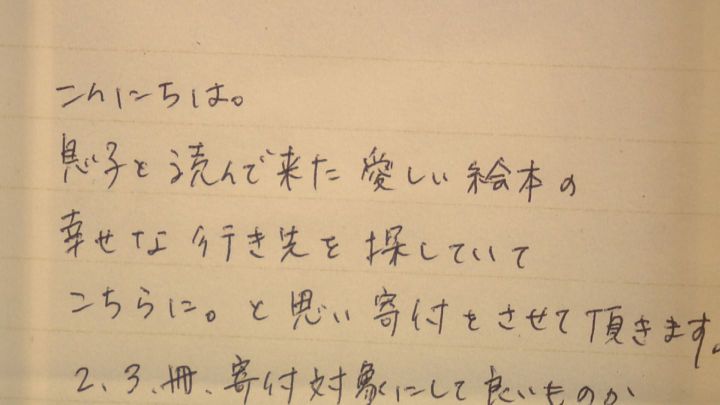 こんにちは。
息子と読んで来た愛しい絵本の
幸せな行き先を探していて
こちらに。と思い寄付をさせて頂きます。
2、3、冊、寄付対象にして良いものか